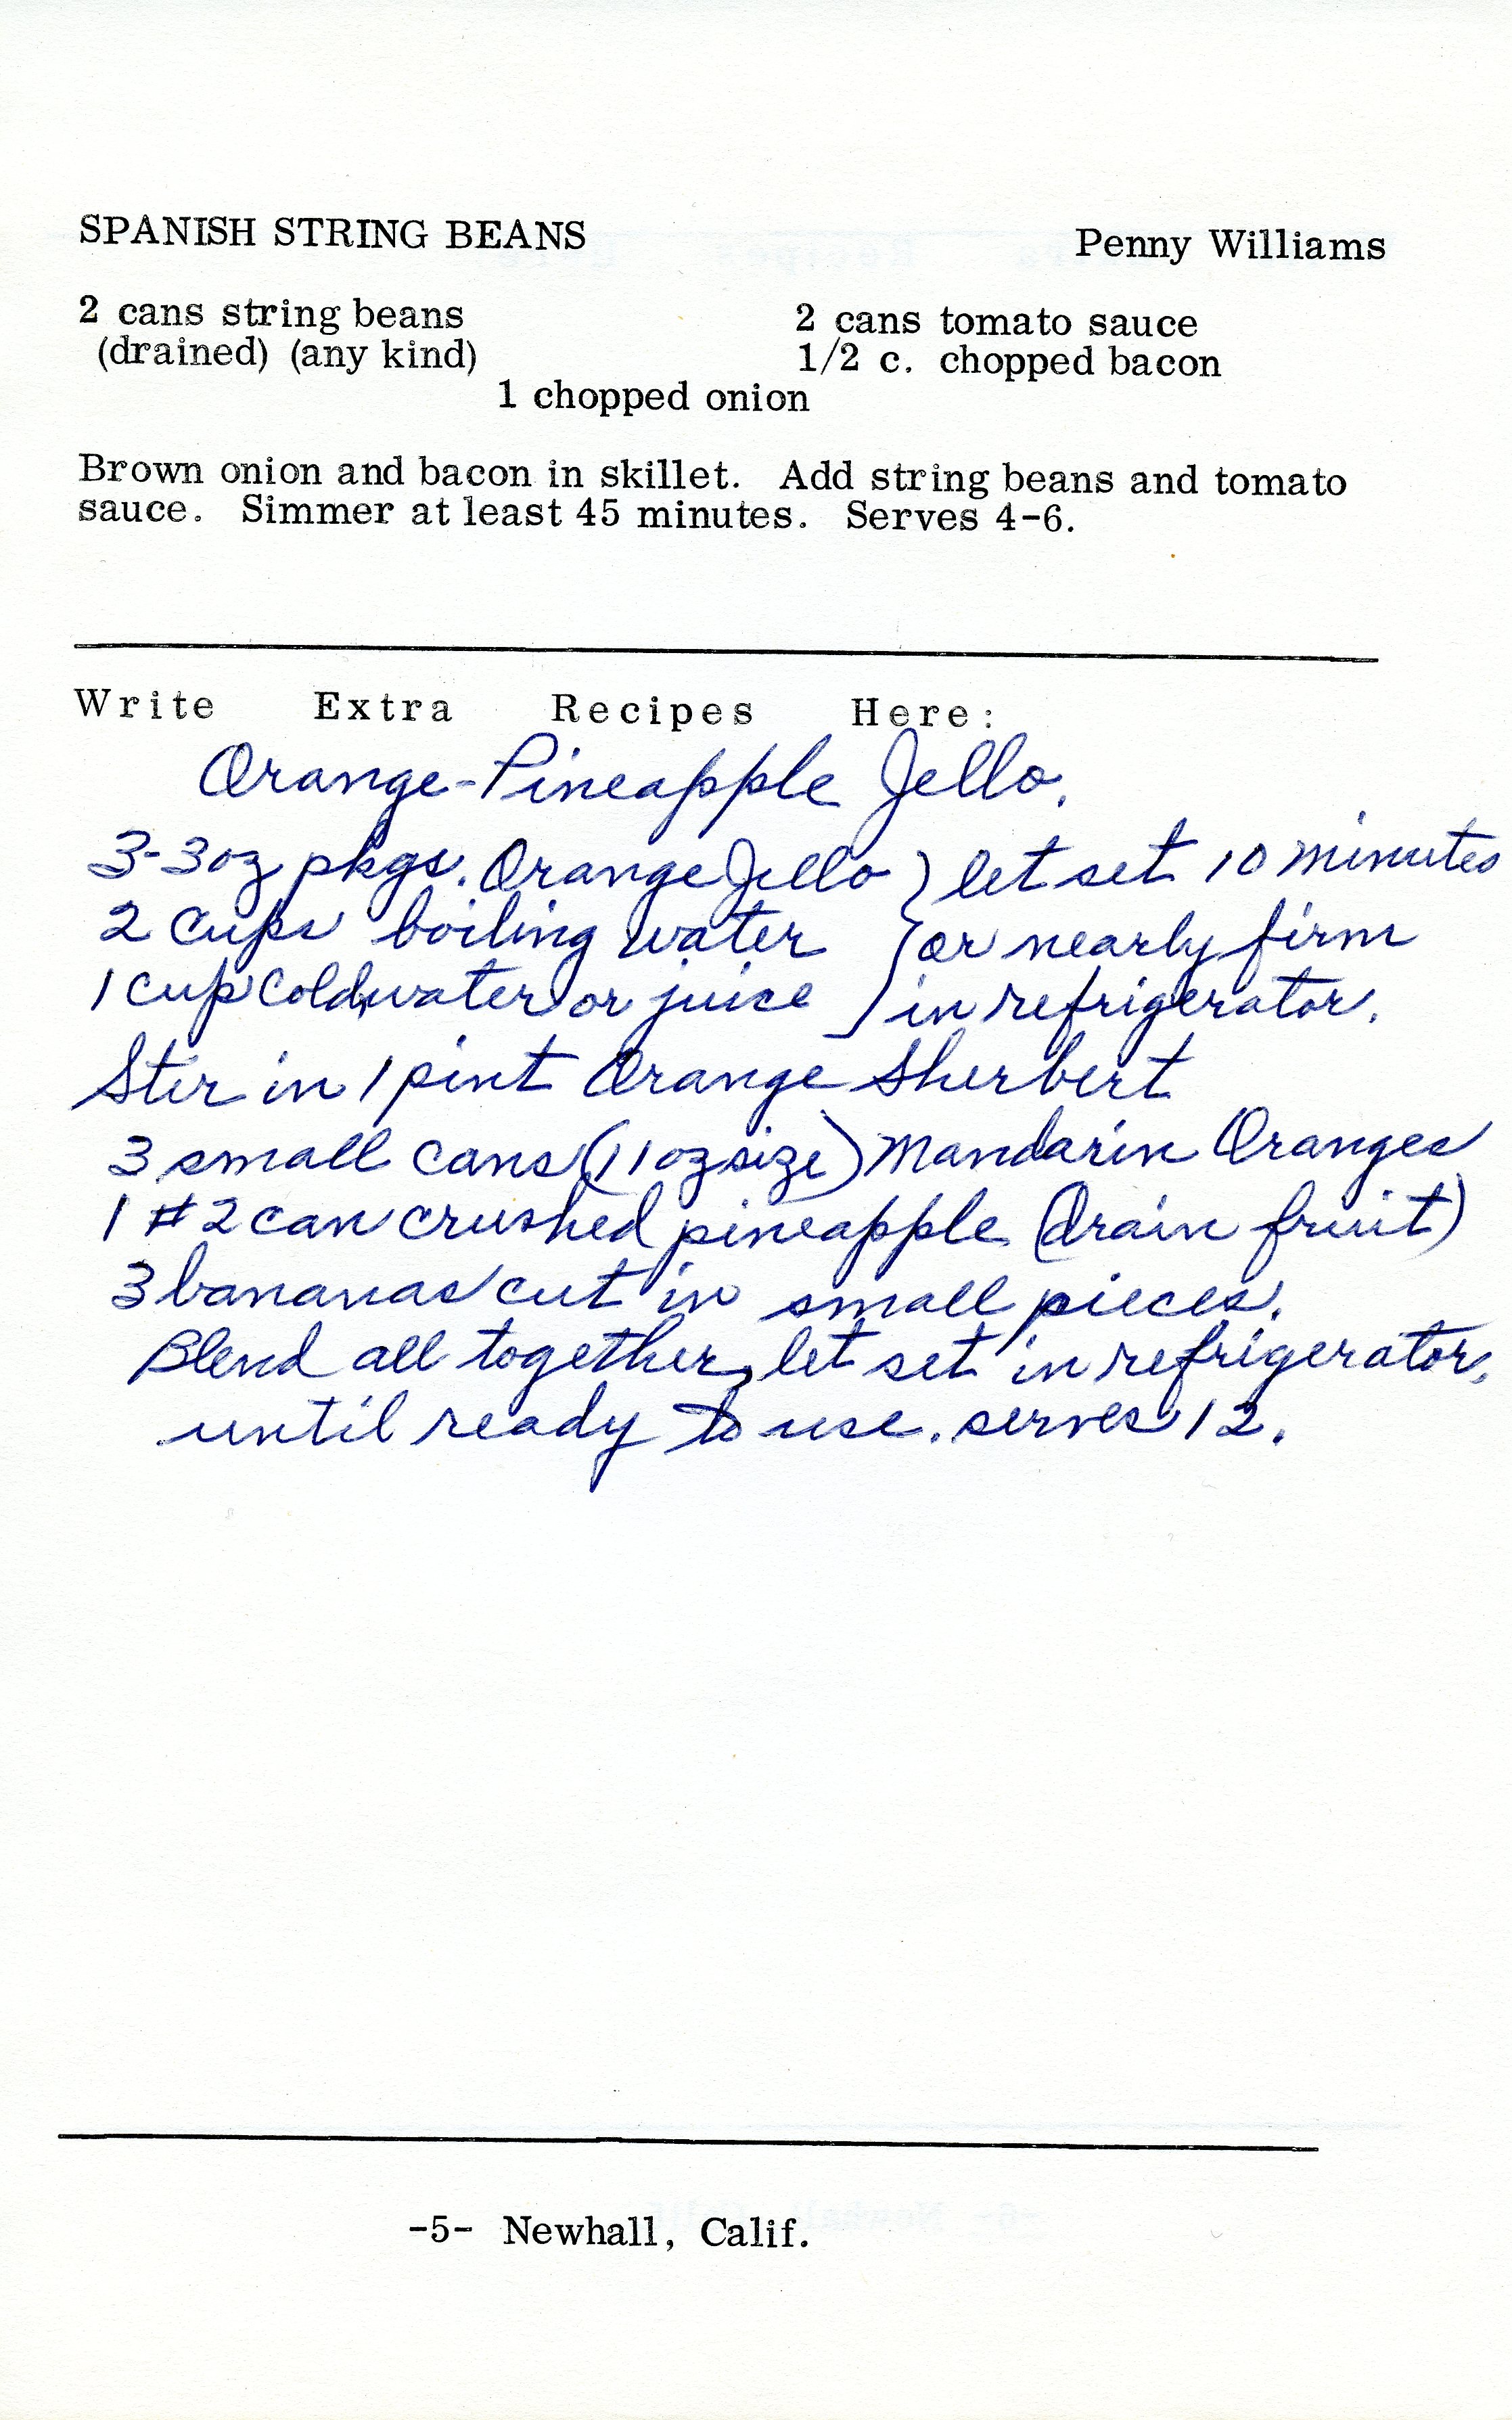 SPANISH STRING BEANS Penny Williams
2 cans string beans 2 cans tomato sauce
(drained) (any kind) 1/2 c. chopped bacon
1 chopped onion
Brown onion and bacon in skillet. Add string beans and tomato
sauce. Simmer at least 45 minutes. Serves 4-6.
Write Extra Recipes Here:
Orange-Pineapple Jello.
3-3oz pkgs. Orange Jello } let set 10 minutes
2 cups boiling water } or nearly firm
1 cup cold water or juice } in refrigerator.
Stir in 1 pint Orange Sherbert
3 small cans (11 oz size) Mandarin Oranges
1 #2 can crushed pineapple (Drain fruit)
3 bananas cut in small pieces.
Blend all together, let set in refrigerator,
until ready to use. serves 12.
-5- Newhall, Calif.